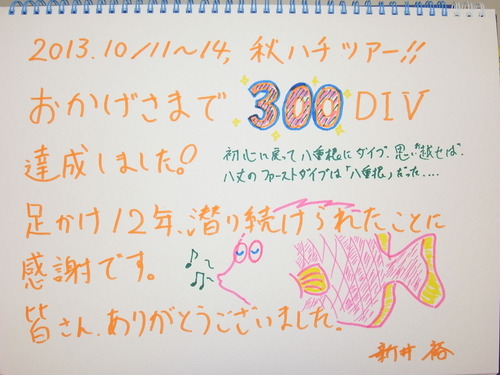 2013.10/11〜14, 秋ハチツアー!!
おかげさまで 300 DIV
達成しました。
初心に戻って八重根にダイブ. 思い越せば.
八丈のファーストダイブは「八重根」だった....
足かけ12年、潜り続けられたことに
感謝です。
皆さん、ありがとうございました。
新井 裕